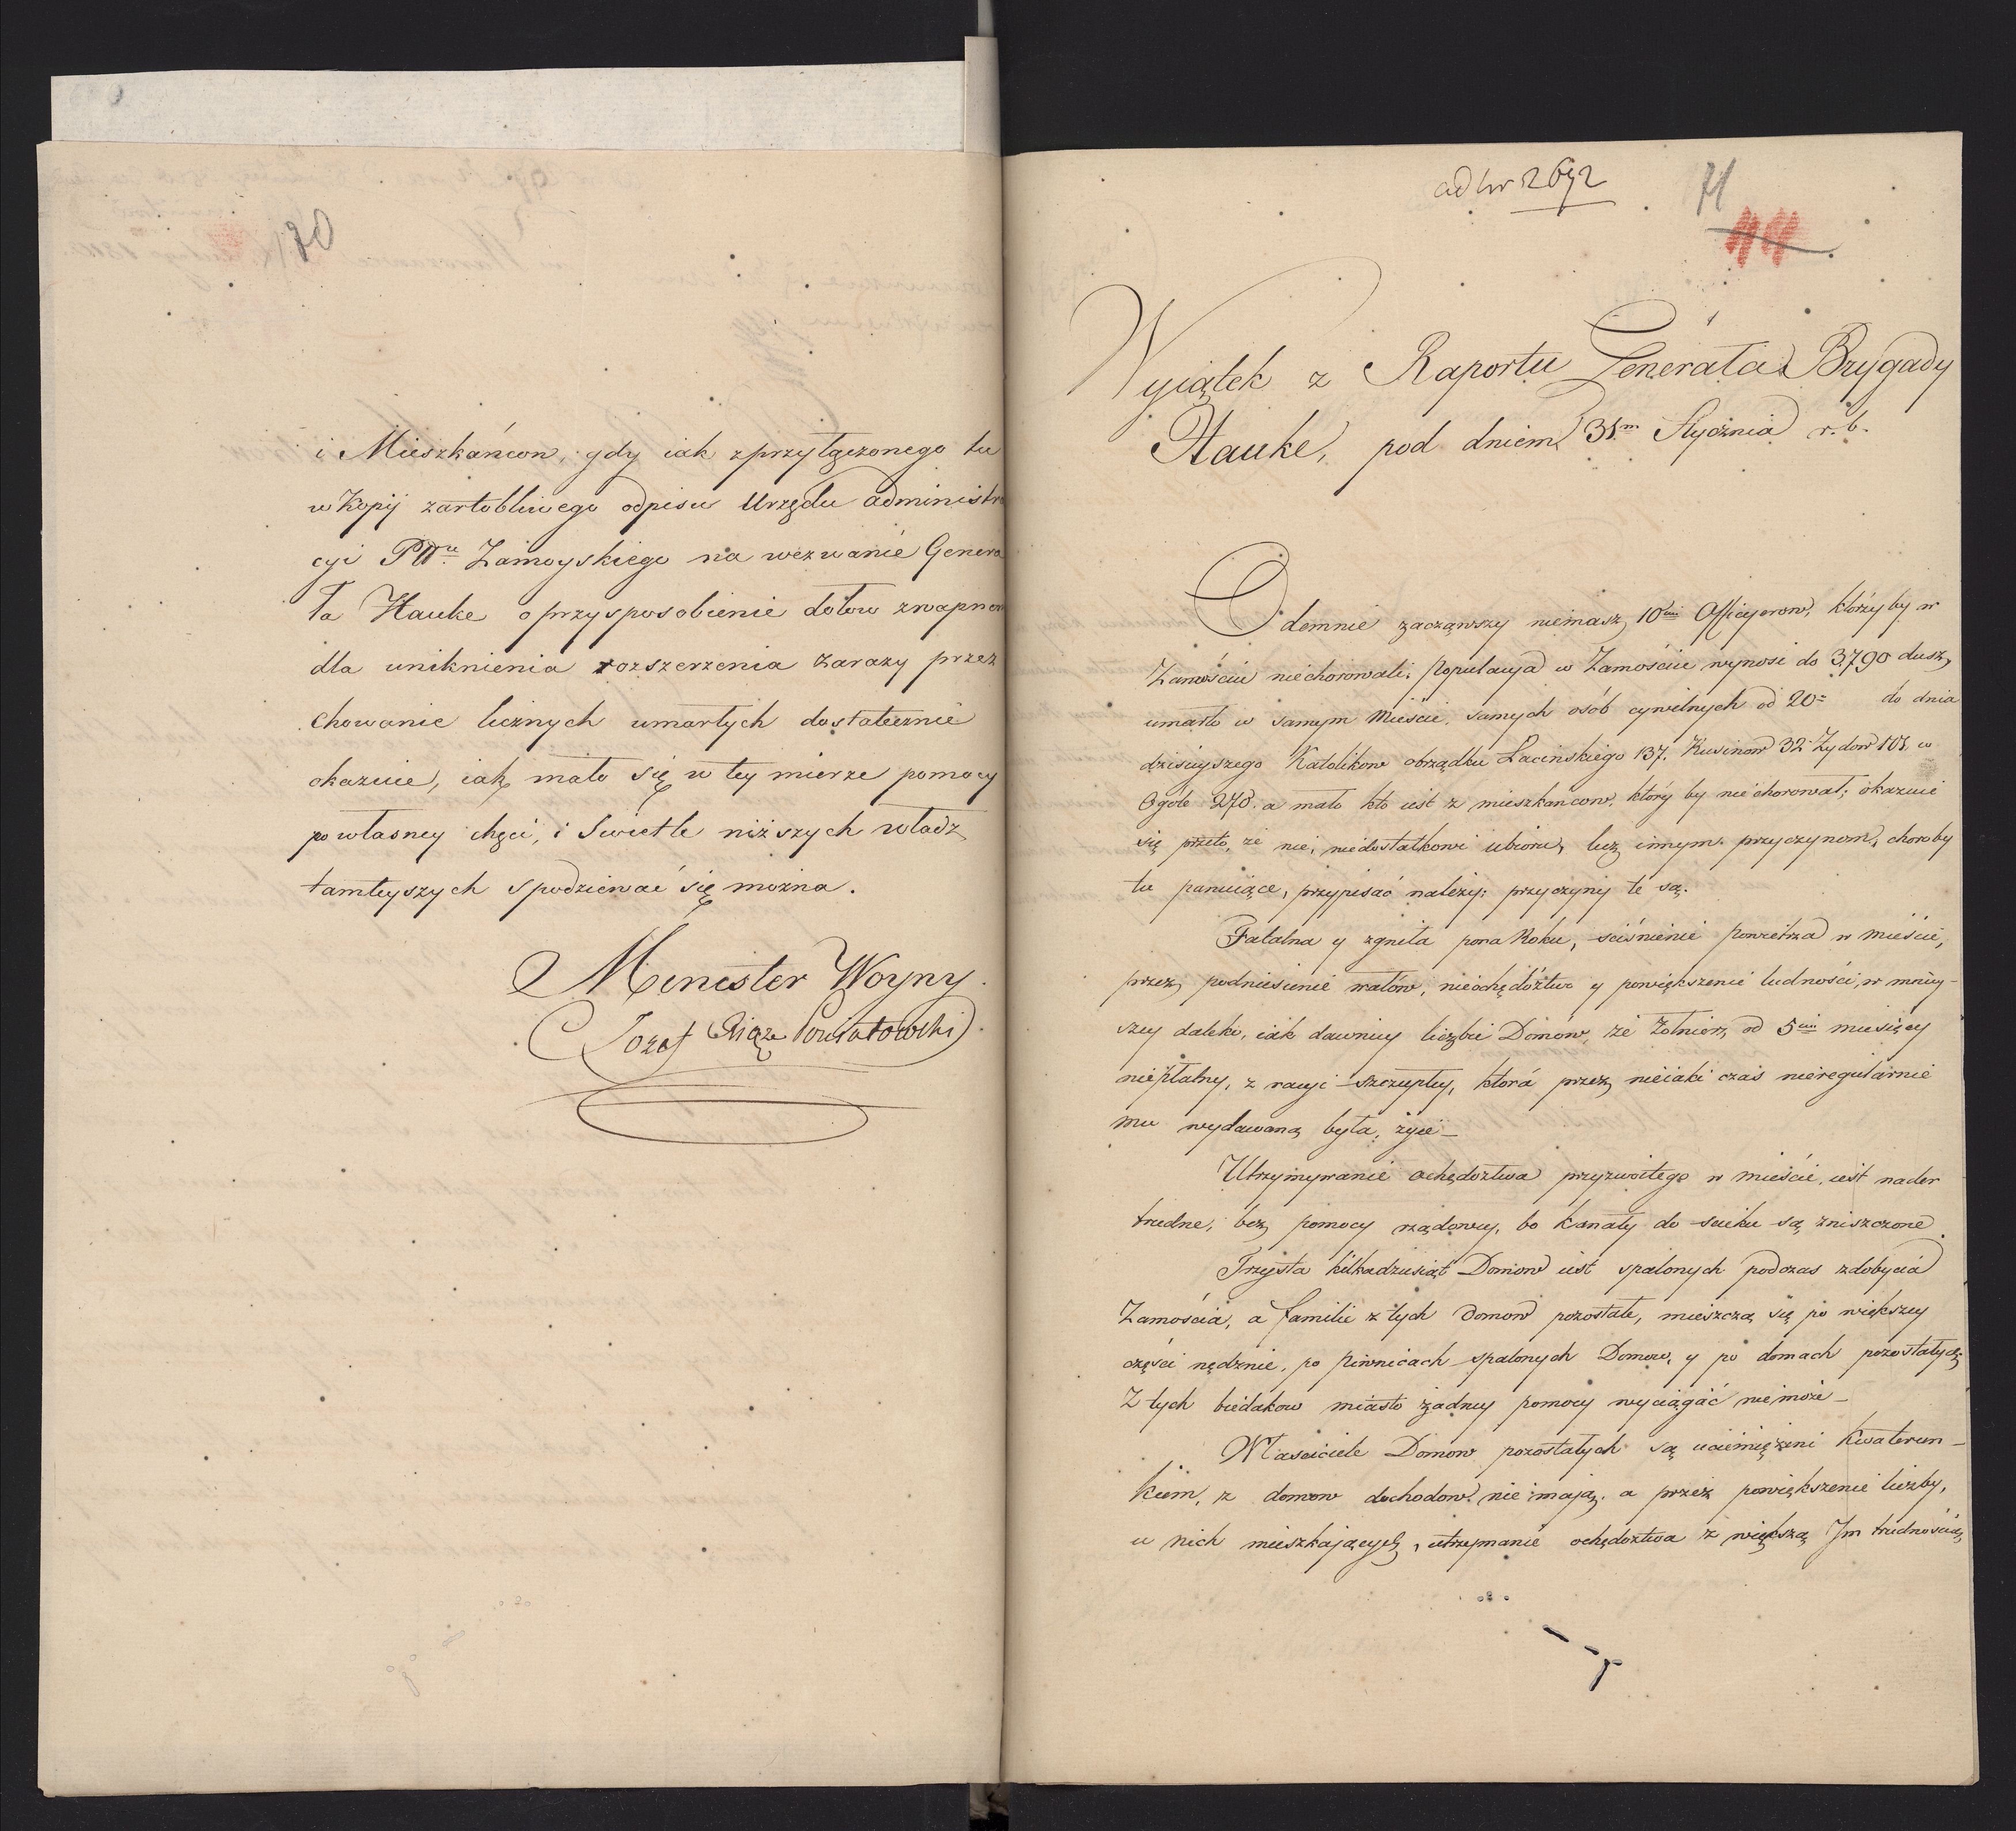 70
i Mieszkańcow, gdy iak z przyłączonego tu
w Kopij żartobliwego odpisu Urzędu administra
cyi PWu Zamoyskiego na wezwanie Genera
ła Hauke o przysposobienie dołow z wapnem
dla uniknienia rozszerzenia zarazy przez
chowanie licznych umarłych dostatecznie
okazuie, iak mało się w tey mierze pomocy
po własney chęci, i Swietle niższych władz
tamteyszych spodziewać się można.
Minister Woyny
Jozef Xiąze Poniatowski
ad Nr 2692
71
Wyiątek z Raportu Generała Brygady
Hauke, pod dniem 31m Stycznia r. b.
Odemnie zacząwszy niemasz 10ciu Officyerow, którzy by w
Zamościu nie chorowali; Populacya w Zamościu wynosi do 3,790 dusz,
umarło w samym Mieście, samych osób cywilnych od 20= do dnia
dzisieyszego Katolikow obrządku Łacińskiego 137. Rusinow 32 Zydow 101. w
Ogóle 270. a mało kto iest z mieszkancow, który by nie chorował; okazuie
się przeto, że nie, niedostatkowi ubioru, lecz innym przyczynom, choroby
tu panuiące, przypisać należy; przyczyny te są.
Fatalna y zgniła pora Roku, ściśnienie powietrza w mieście,
przez podniesienie wałów, nieochędóztwo y powiększenie ludności, w mniey-
szey daleko, iak dawniey liczbie Domów, że żołnierz od 5ciu miesięcy
niepłatny, z racyi szczupłey, która przez nieiaki czas nieregularnie
mu wydawaną była, żyie—
Utrzymywanie ochędoztwa przyzwoitego w mieście, iest nader
trudne, bez pomocy rządowey, bo kanały do scieku są zniszczone
Trzysta kilkadziesiąt Domow iest spalonych podczas zdobycia
Zamościa, a familie z tych domow pozostałe, mieszczą się po większey
części nędznie, po piwnicach spalonych Domow, y po domach pozostałych
Z tych biedakow miasto żadney pomocy wyciągać nie może—
Właściciele Domow pozostałych są uciemiężeni kwaterun-
kiem, z domow dochodow nie mają, a przez powiększenie liczby,
u nich mieszkających, utrzymanie ochędoztwa z większą Im trudnością